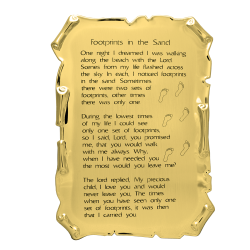 Footprints in the Sand
One night I dreamed I was walking
along the beach with the Lord
Scenes from my life flashed across
the sky. In each, I noticed footprints
in the sand. Sometimes
there were two sets of
footprints, other times
there was only one
During the lowest times
of my life I could see
only one set of footprints,
so I said, Lord, you promised
me, that you would walk
with me always. Why,
when I have needed you
the most would you leave me?
The lord replied, My precious
child, I love you and would
never leave you. The times
when you have seen only one
set of footprints, it was then
that I carried you